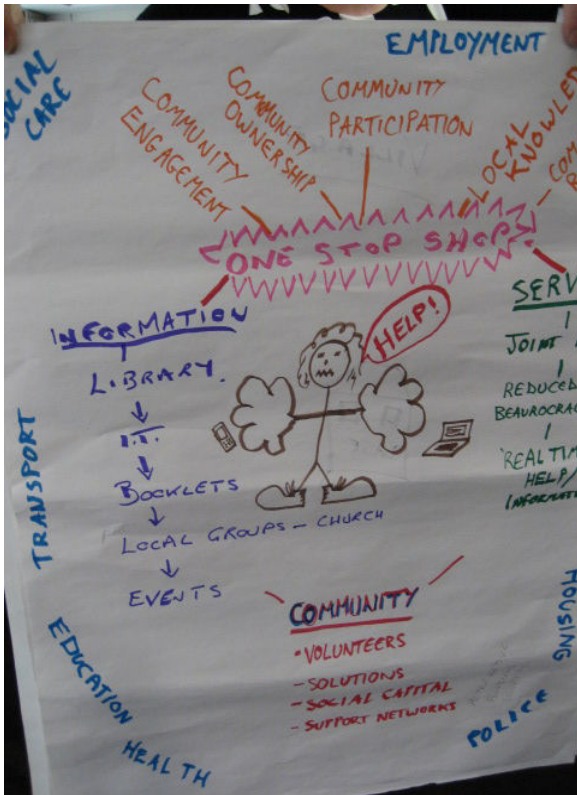 EMPLOYMENT
SOCIAL
CARE
COMMUNITY
ENGAGEMENT
COMMUNITY
OWNERSHIP
COMMUNITY
PARTICIPATION
LOCAL
KNOWLED
COM
ONE STOP SHOP
INFORMATION
LIBRARY.
I.T.
BOOKLETS
LOCAL GROUPS - CHURCH
EVENTS
HELP!
SERV
JOINT
REDUCED
BEAUROCRA
REAL TIM
HELP/
INFORMAT
TRANSPORT
COMMUNITY
• VOLUNTEERS
- SOLUTIONS
- SOCIAL CAPITAL
- SUPPORT NETWORKS
EDUCATION
HEALTH
HOUSING
POLICE